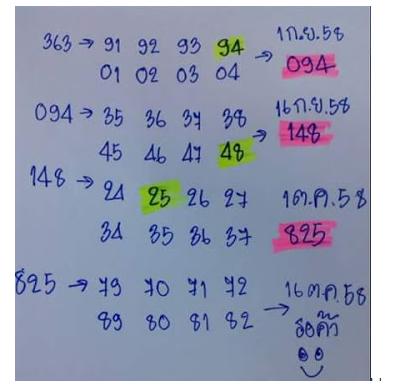 363 → 91 92 93 94 → 1 ก.ย.58
01 02 03 04 094
094 → 35 36 37 38 → 16 ก.ย.58
45 46 47 48 148
148 → 24 25 26 27 1 ต.ค.58
34 35 36 37 825
825 → 79 70 71 72 → 16 ต.ค.58
89 80 81 82 รอคิว